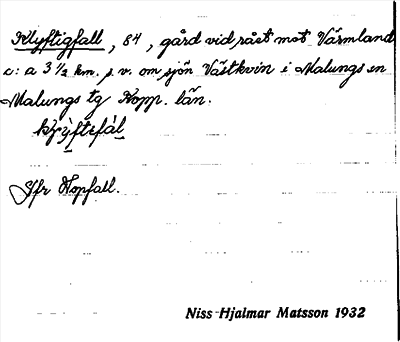 Klyftigfall, 84, gård vid råst mot Värmland
c:a 3 1/2 km. s.v. om sjön Västkvin i Malungs sn
Malungs tg Kopp. län.
Jfr Hopfall.
Niss Hjalmar Matsson 1932